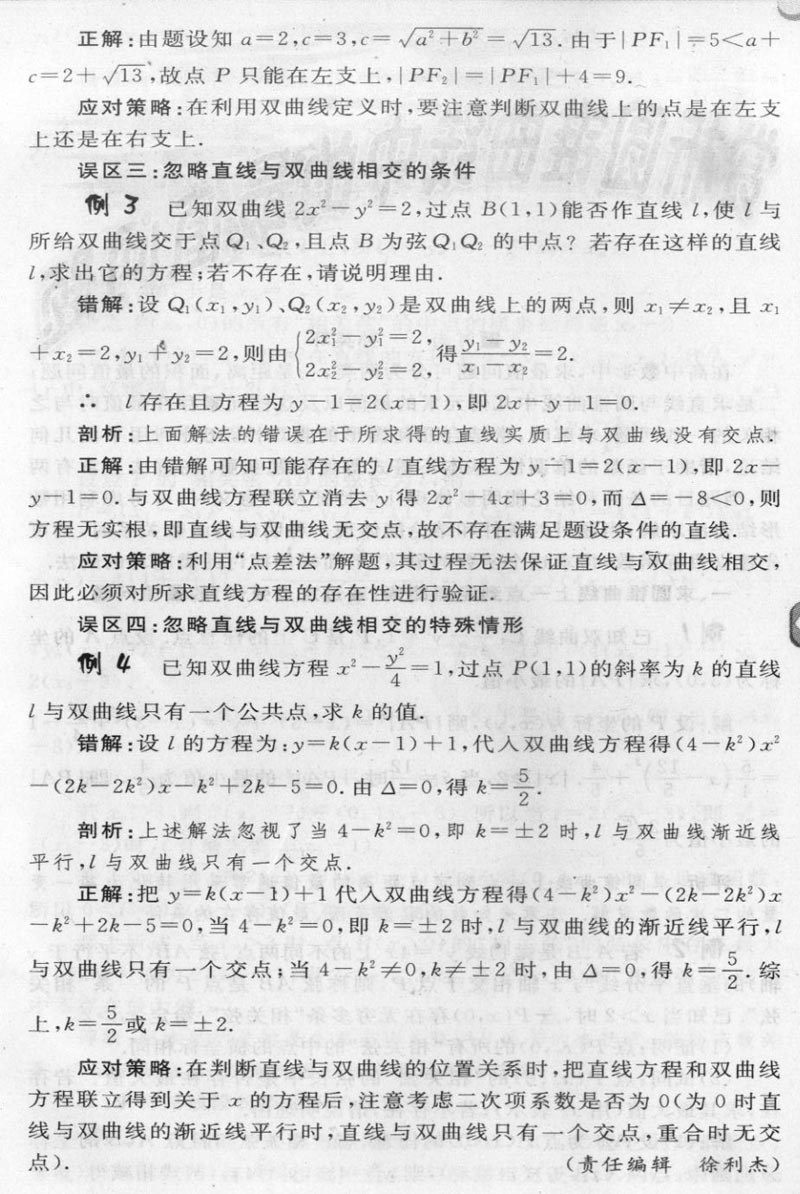 正解:由题设知 a=2,c=3,c=√(a²+b²)=√13.由于|PF₁|=5<a+
c=2+√13,故点 P 只能在左支上,|PF₂|=|PF₁|+4=9.
应对策略:在利用双曲线定义时,要注意判断双曲线上的点是在左支
上还是在右支上.
误区三:忽略直线与双曲线相交的条件
例3 已知双曲线 2x²-y²=2,过点 B(1,1)能否作直线 l,使 l 与
所给双曲线交于点Q₁、Q₂,且点 B 为弦Q₁Q₂ 的中点?若存在这样的直线
l,求出它的方程;若不存在,请说明理由.
错解:设 Q₁(x₁,y₁)、Q₂(x₂,y₂)是双曲线上的两点,则 x₁≠x₂,且 x₁
+x₂=2,y₁+y₂=2,则由{2x₁²-y₁²=2, 2x₂²-y₂²=2,得(y₁-y₂)/(x₁-x₂)=2.
∴ l存在且方程为 y-1=2(x-1),即 2x-y-1=0.
剖析:上面解法的错误在于所求得的直线实质上与双曲线没有交点.
正解:由错解可知可能存在的 l 直线方程为 y-1=2(x-1),即 2x-
y-1=0.与双曲线方程联立消去 y 得 2x²-4x+3=0,而 Δ=-8<0,则
方程无实根,即直线与双曲线无交点,故不存在满足题设条件的直线.
应对策略:利用“点差法”解题,其过程无法保证直线与双曲线相交,
因此必须对所求直线方程的存在性进行验证.
误区四:忽略直线与双曲线相交的特殊情形
例4 已知双曲线方程 x²-y²/4=1,过点 P(1,1)的斜率为 k 的直线
l 与双曲线只有一个公共点,求 k 的值.
错解:设 l 的方程为:y=k(x-1)+1,代入双曲线方程得(4-k²)x²
-(2k-2k²)x-k²+2k-5=0.由 Δ=0,得 k=5/2.
剖析:上述解法忽视了当 4-k²=0,即 k=±2 时,l 与双曲线渐近线
平行,l 与双曲线只有一个交点.
正解:把 y=k(x-1)+1 代入双曲线方程得(4-k²)x²-(2k-2k²)x
-k²+2k-5=0,当 4-k²=0,即 k=±2 时,l 与双曲线的渐近线平行,l
与双曲线只有一个交点;当 4-k²≠0,k≠±2 时,由 Δ=0,得 k=5/2.综
上,k=5/2或 k=±2.
应对策略:在判断直线与双曲线的位置关系时,把直线方程和双曲线
方程联立得到关于 x 的方程后,注意考虑二次项系数是否为 0(为 0 时直
线与双曲线的渐近线平行时,直线与双曲线只有一个交点,重合时无交
点). (责任编辑 徐利杰)